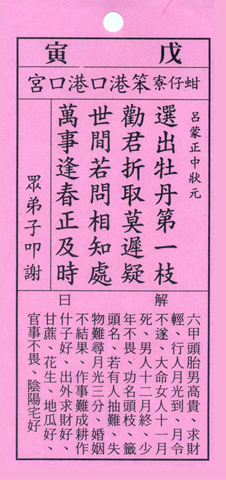 戊寅
蚶仔寮笨港口港口宮
呂蒙正中狀元
選出牡丹第一枝
勸君折取莫遲疑
世間若問相知處
萬事逢春正及時
眾弟子叩謝
解曰
六甲頭胎男高貴、求財
輕、行人月光到、月令
不遂、大命女人十一月
死、男人十二月終、少
年不畏、功名頭枝、籤
頭名、若有人抽難、失
物難尋月光三分、婚姻
不結果、作事難成耕作
什子好、出外求財好、
甘蔗、花生、地瓜好、
官事不畏、陰陽宅好